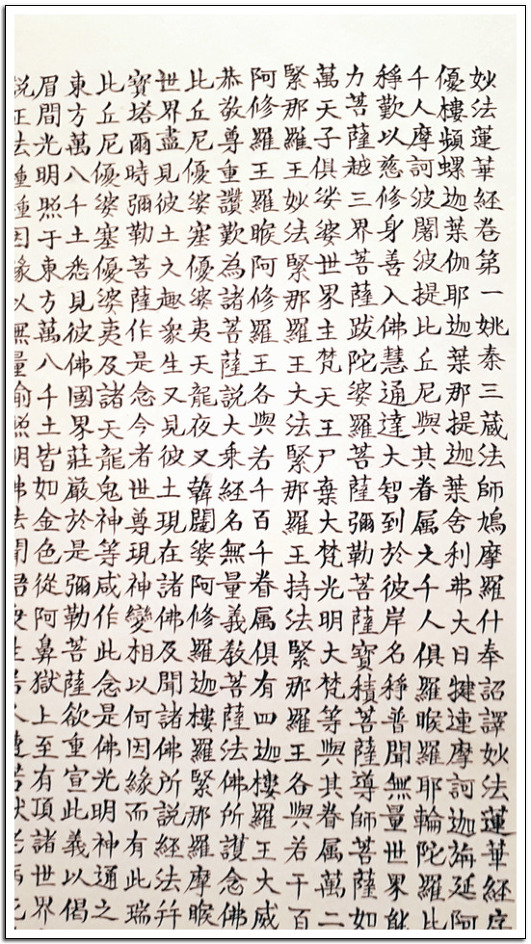 妙法蓮華經卷第一姚秦三蔵法師鳩摩羅什奉詔譯妙法蓮華經序
優樓頻螺迦葉伽耶迦葉那提迦葉舍利弗大日犍連摩訶迦旃延阿
千人摩訶波闍波提比丘尼與其眷属六千人俱羅睺羅耶輪陀羅比
稱歎以慈修身善入佛慧通達大智到於彼岸名稱普聞無量世界能
力菩薩越三界菩薩跋陀婆羅菩薩彌勒菩薩寶積菩薩導師菩薩如
萬天子俱娑婆世界主梵天王尸棄大梵光明大梵等與其眷属萬二
緊那羅王妙法緊那羅王大法緊那羅王持法緊那羅王各與若干百
阿修羅王羅睺阿修羅王各與若千百千眷属俱有四迦樓羅王大威
恭敬尊重讚歎為諸菩薩說大乘經名無量義教菩薩法佛所護念佛
比丘尼優婆塞優婆夷天龍夜叉乾闥婆阿修羅迦樓羅緊那羅摩睺
世界盡見彼土六趣衆生又見彼土現在諸佛及聞諸佛所説經法并
寶塔爾時彌勒菩薩作是念今者世尊現神變相以何因緣而有此瑞
此丘尼優婆塞優婆夷及諸天龍鬼神等咸作此念是佛光明神通之
東方萬八千土悉見彼佛國界莊厳於是彌勒菩薩欲重宣此義以偈
眉間光明照于東方萬八千土皆如金色從阿鼻獄上至有頂諸世界
説正法種種因縁以無量喻照明佛法開悟衆生若人遭苦猒老病死